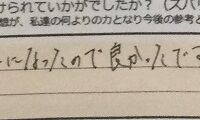 けられていかがでしたか？（ズバリ
想が、私達の何よりの力となり今後の参考と
になったので良かったです